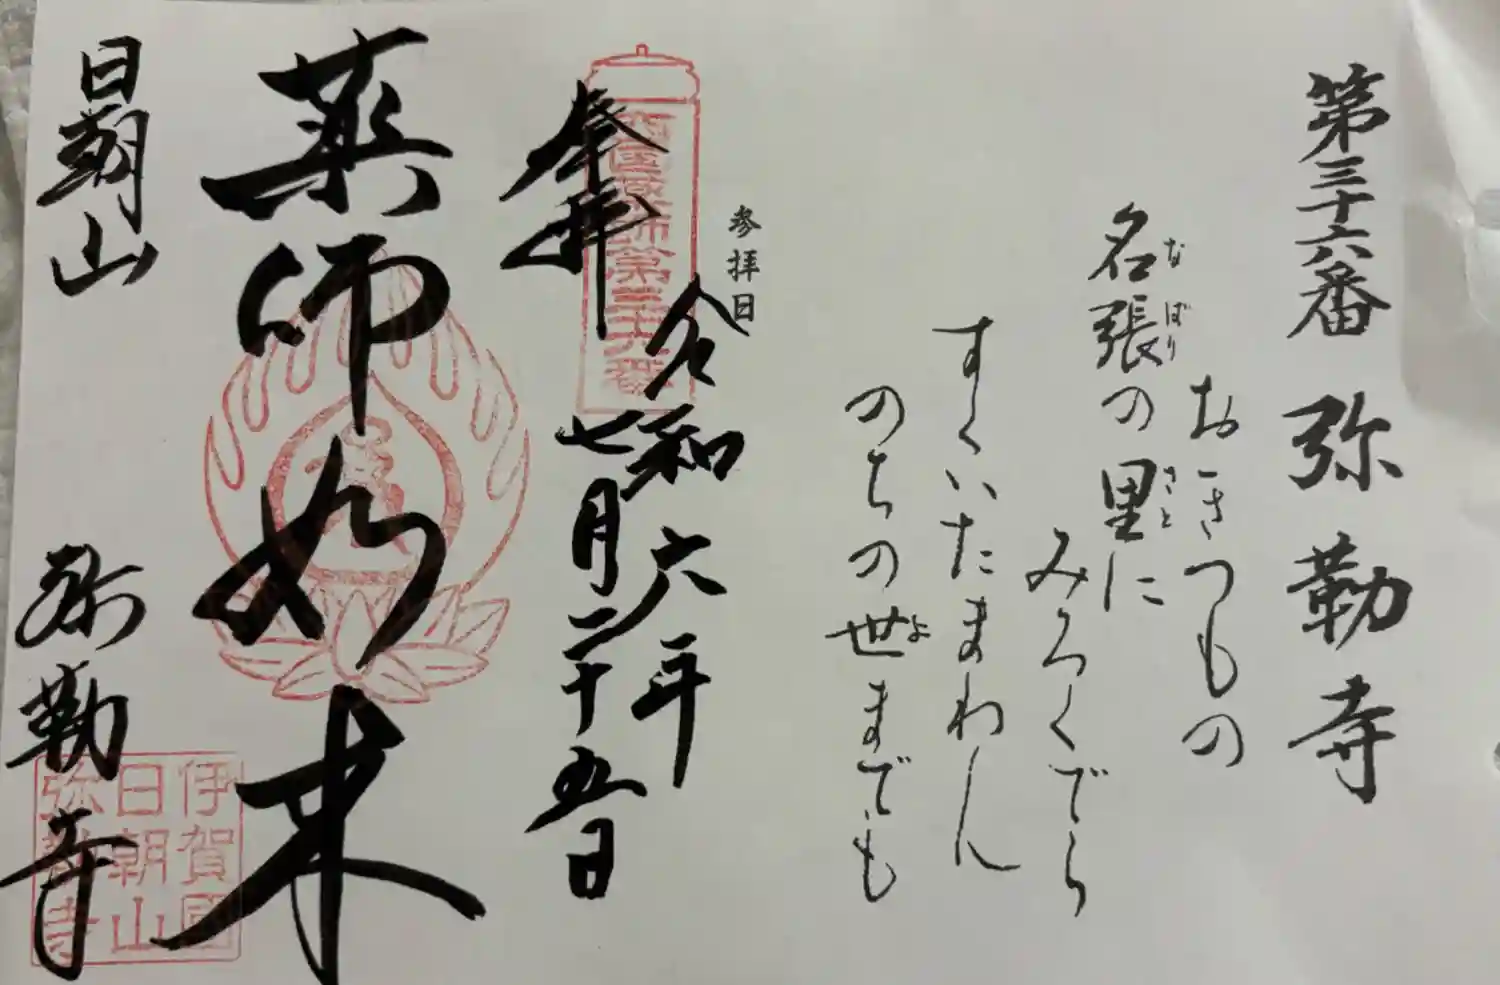 第三十六番 弥勒寺
おきつもの
名張の里に
なばり
さと
みろくでら
すくいたまわん
のちの世までも
よ
参拝日
令和六年
七月二十五日
奉拝
西国薬師第三十六番
薬師如来
日朝山 弥勒寺
伊賀國
日朝山
弥勒寺